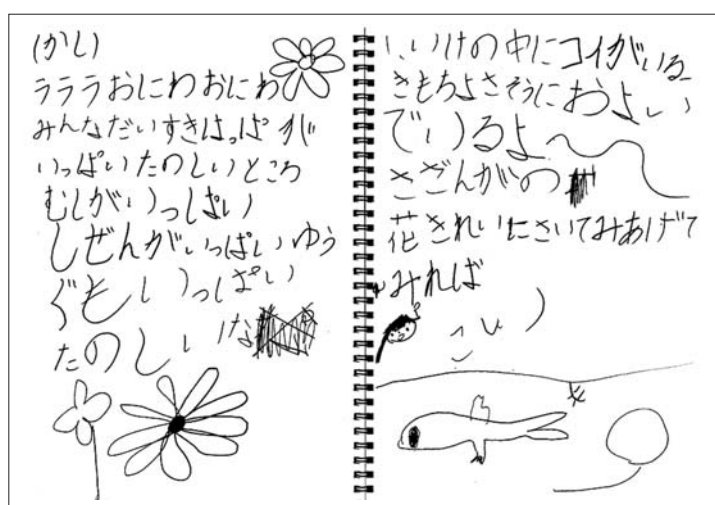 (かし)
ラララおにわおにわ
みんなだいすきはっぱが
いっぱいたのしいところ
むしがいっぱい
しぜんがいっぱいゆう
ぐもいっぱい
たのしいな
いけの中にコイがいる
きもちよさそうにおよい
でいるよ〜
さざんがの
花きれいにさいてみあげて
みれば